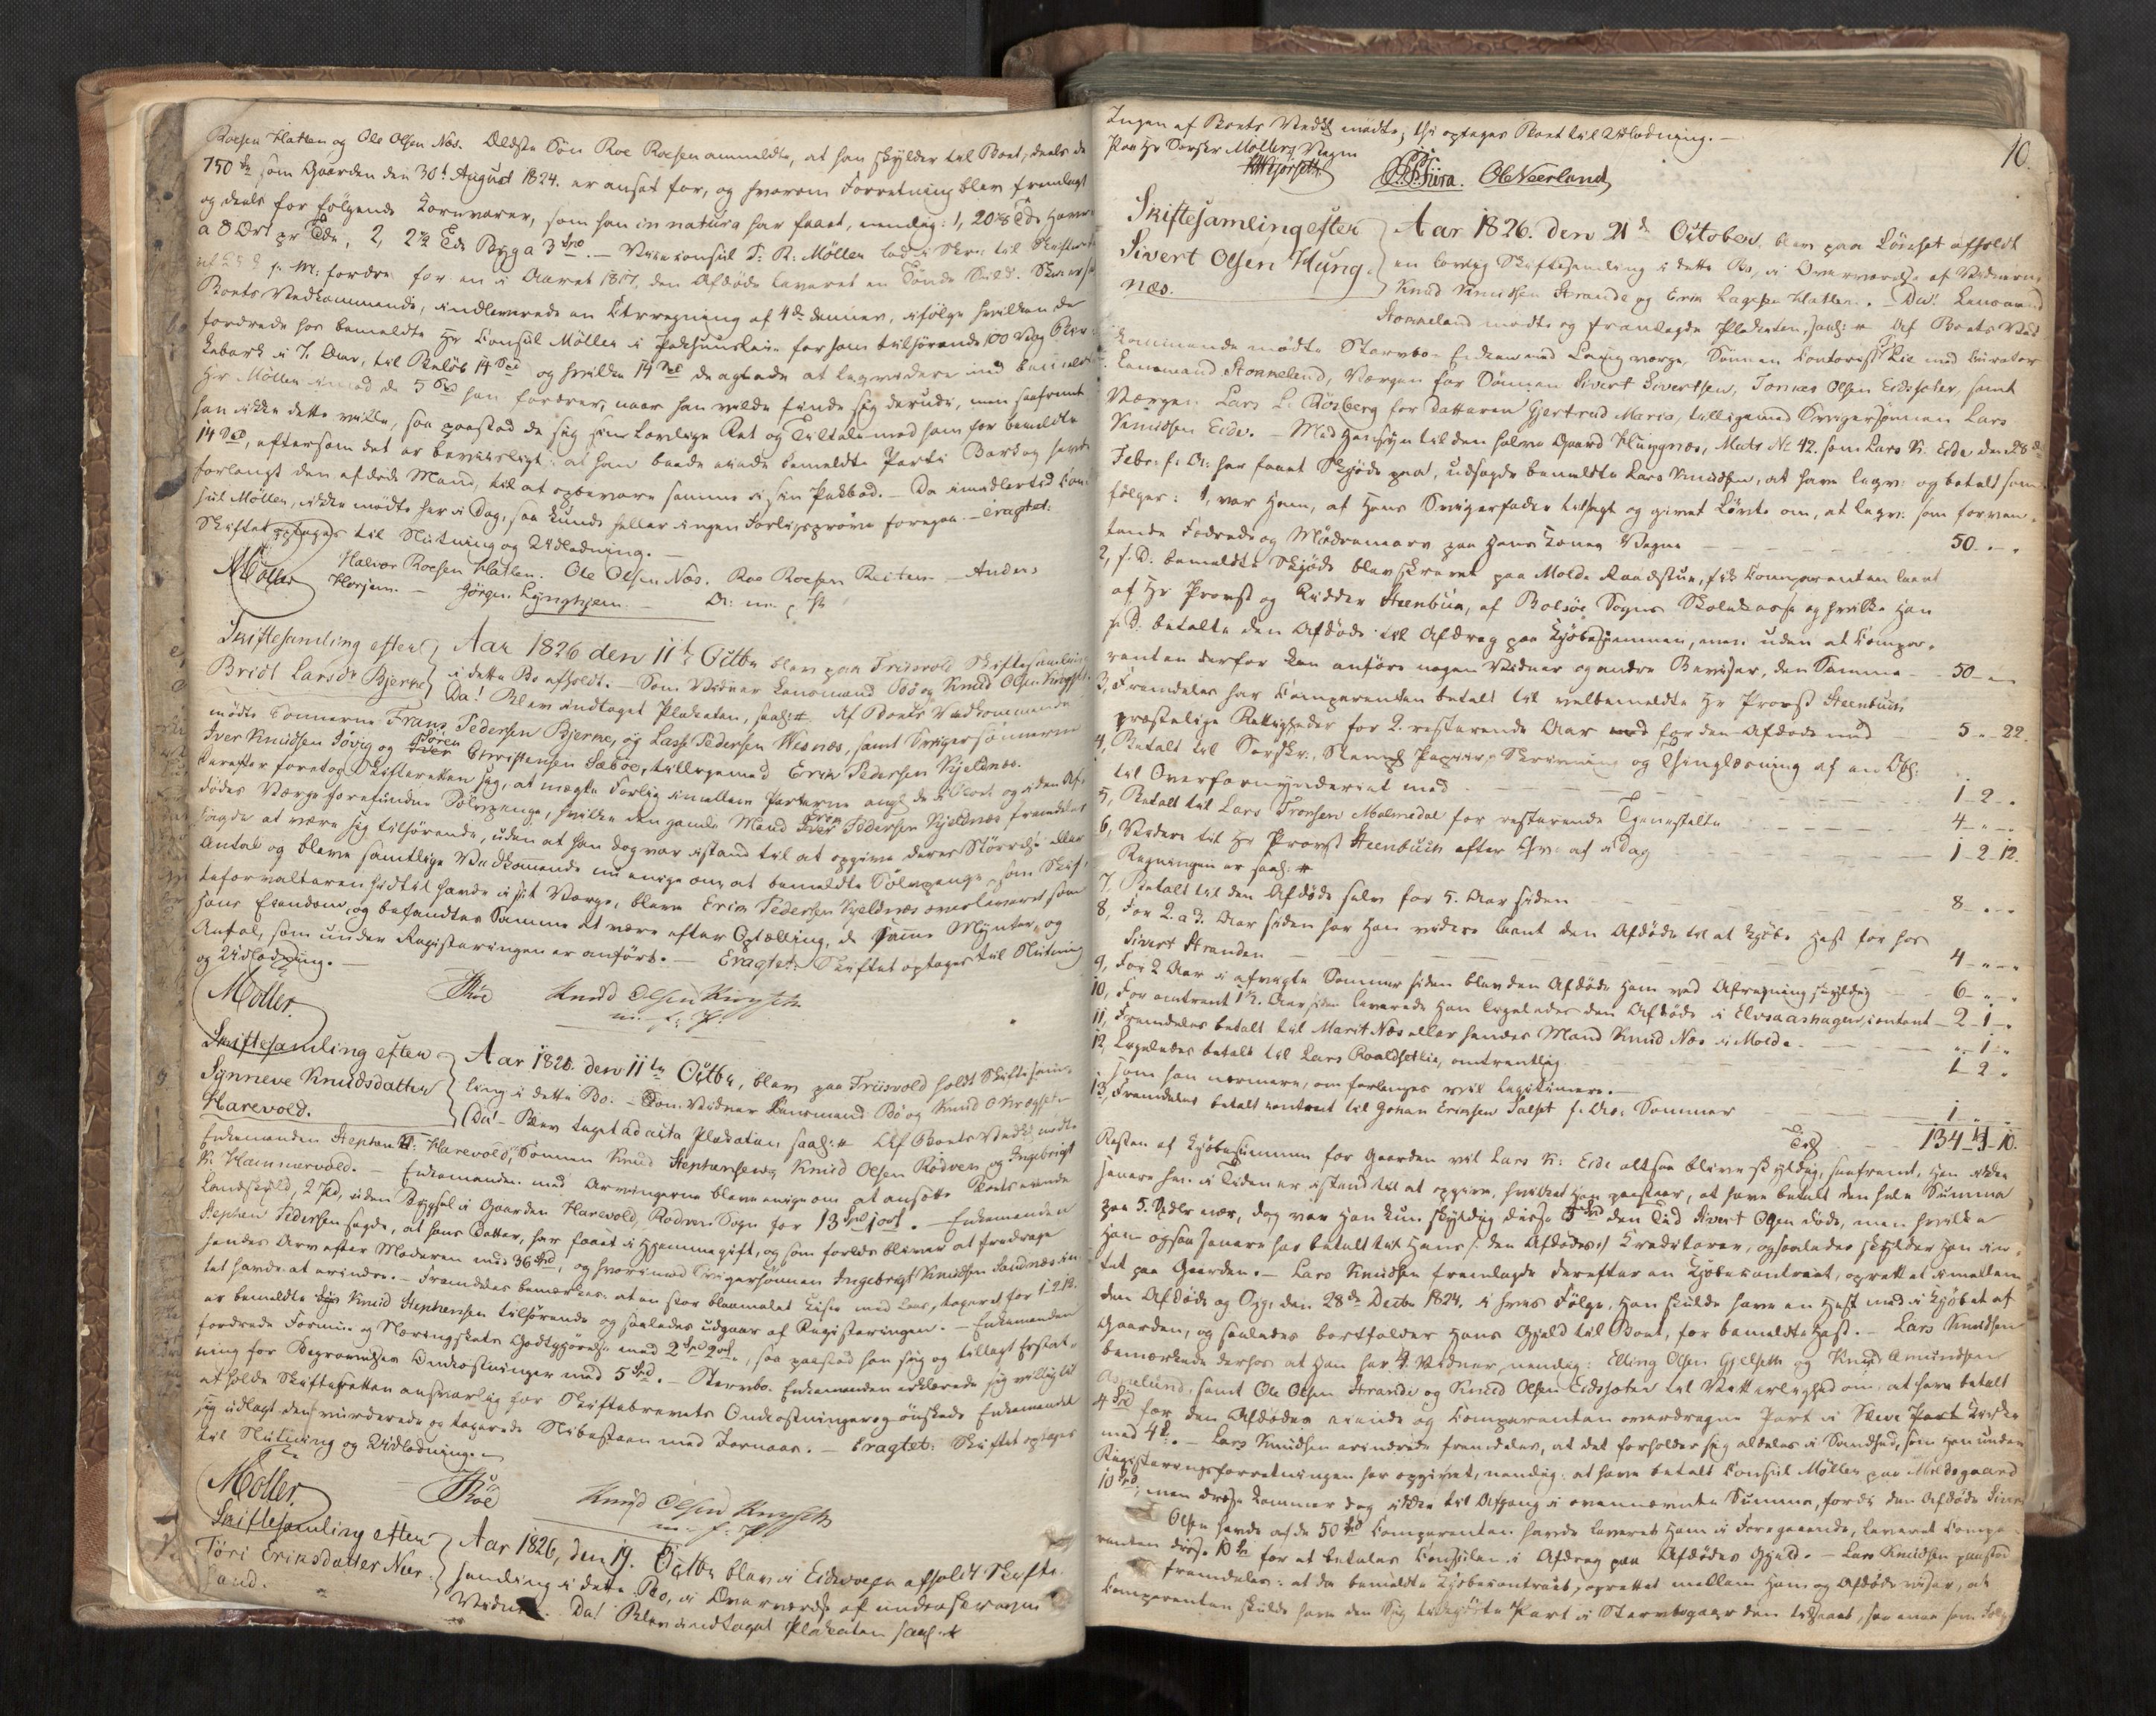 Roesen Hatlen og Ole Olsen Nos. Ældste Søn Roe Roesen anmeldte, at han skylder til Boet, deels de
750 som Gaarden den 30t August 1824. er ansat for, og hvorom Forretning blev fremlagt
og deels for følgende Kornvarer, som han in natura har faaet, nemlig: 1,
a 8 Ort pr Tde, 2, 2½ Tde Byg a 3 — Viceconsul P. Møller lod
fordre for en i Aaret 1817, den Afdøde leveret en Tønde Sild.
Boets Vedkommende, indleverede en Contraregning af 4de dennes, ifølge hvilken de
fordrede hos bemeldte Hr Consul Møller i Pakhuusleie for ham tilhørende 100 Vog
i 7. Aar, til Beløb 14 og hvilke 14 de agtede at liqvidere
Hr Møller imod de 5 han fordrer, naar han vilde finde sig derudi, men saafremt
han ikke dette vilde, saa paastod de sig sin Lovlige Ret og Tiltale mod ham for bemeldte
14, eftersom det er beviisligt: at han baade eiede bemeldte Parti Bark og havde
forlangt den afdøde Mand, til at opbevare samme i sin Pakbod. — Da imidlertid Con-
sul Møller, ikke mødte her i Dag, saa kunde heller ingen Forligsprøve foregaae. — Eragtet:
Skiftet optages til Slutning og Udlodning. —
Møller Halvor Roesen Hatlen. Ole Olsen Nos. Roe Roesen Reiten — Anders
Horjem. — Jörgen Lÿnghjem. —
Skiftesamling efter Aar 1826 den 11te Octbr blev paa Friisvold Skiftesamling
Bridt Larsdr Bjerke i dette Bo afholdt. — Som Vidner Lensmand Bö og Knud Olsen
Da! Blev indtaget Placaten, saal: # Af Boets Vedkommende
mødte Sønnerne Frans Pedersen Bjerke, og Lasse Pedersen Wesnæs, samt Svigersønnerne
Iver Knudsen Jövig og Sören Christensen Sæböe, tilligemed Erik Pedersen Kjeldnæs.
Derefter foretog Skifteretten sig, at mægle Forlig imellem Parterne
dødes Værge forefundne Sølvpenge, hvilke den gamle Mand Erik Pedersen Kjeldnæs fremdeles
sagde at være sig tilhørende, uden at han dog var istand til at opgive deres Størrelse eller
Antal og bleve samtlige Vedkomende nu enige om, at bemeldte Sølvpenge, som Skif-
teforvalteren hidtil havde i sit Værge, bleve Erik Pedersen Kjeldnæs overleveret som
hans Eiendom, og befandtes Samme at være efter Optælling, de samme Mynter og
Antal, som under Registeringen er anført. — Eragtet: Skiftet optages til Slutning
og Udlodning. —
Møller. Bøe Knud Olsen
Skiftesamling efter Aar 1826. den 11te Octbr, blev paa Friisvold holdt Skiftesam-
Synneve Knudsdatter ling i dette Bo: — Som Vidner Lensmand Bö og Knud O.
Harevold. Da! — Blev taget ad acta Placaten saal: # Af Boets Vedk mødte
Enkemanden Stephen P: Harevold, Sønnen Knud Stephensen, Knud Olsen Rödven og Ingebrigt
K: Hammervold. — Enkemanden med Arvingerne bleve enige om at ansætte Boets eiende
Landskyld, 2 Pd, uden Bygsel i Gaarden Harevold, Rødven Sogn for 13 — Enkemanden
Stephen Pedersen sagde, at hans Datter, har faaet i Hjemmegift, og som forlods bliver at fradrage
hendes Arv efter Moderen med 36, og hvorimod Svigersønnen Ingebrigt Knudsen in-
tet havde at erindre. — Fremdeles bemærkes at en stor blaamalet Kiste med Laas, taxeret for 1.2.12.
er bemeldte Knud Stephensen tilhørende og saaledes udgaaer af Registeringen. — Enkemanden
fordrede Formue og Næringsskats Godtgjørelse med 2, saa paastod han sig og tillagt Erstat-
ning for Begravelses Omkostninger med 5. — Stervbo Enkemanden erklærede sig villig til
at holde Skifteretten ansvarlig for Skiftebrevets Omkostninger og ønskede Enkemanden
sig udlagt den vurderede og taxerede
til Slutning og Udlodning. —
Møller. Bøe Knud Olsen
Skiftesamling efter Aar 1826, den 19. Octbr blev i Eidsvogn afholdt Skifte-
Töri Eriksdatter Neer- samling i dette Bo, i Overværelse af underskrevne
land. Vidner. Da! Blev indtaget Placaten saal: #
10.
Ingen af Boets Vedk mødte; thi optages Boet til Udlodning. —
Paa Hr Sorskr Møllers Vegne
Ole Neerland
Skiftesamling efter Aar 1826. den 21de October, blev paa Lönset afholdt
Sivert Olsen Klung- en lovlig Skiftesamling i dette Bo, i Overværelse af Vidnerne
næs. Knud Knudsen Strande og Erik Lassesen Hatlen. — Da! Lensmand
Stokkeland mødte og fremlagde Placaten, saal: # Af Boets Ved-
kommende mødte Stervbo-Enken med Laugværge, Sønnen Contorist Lie med Curator
Lensmand Stokkeland, Værgen for Sønnen Sivert Sivertsen, Tomas Olsen Eidssæter, samt
Værgen Lars L. Rösberg for Datteren Gjertrud Maria, tilligemed Svigersønnen Lars
Knudsen Eide. — Med Hensyn til den halve Gaard Klungnæs, Matr No 42. som Lars K. Eide den 28de
Febr: f: A: har faaet Skjøde paa, udsagde bemeldte Lars Knudsen, at have liqv: og betalt som
følger: 1, var Ham, af Hans Svigerfader tilsagt og givet Løvte om, at liqv: som forven-
tende Fædrene og Mødrenearv paa Hans Kones Vegne — 50 - „ - „
2, f. D. bemeldte Skjøde blev skrevet paa Molde Raadstue, fik Comparenten laant
af Hr Provst og Ridder Steenbuch, af Bolsöe Sogns Skolekasse og hvilke Han
f: D. betalte den Afdøde til Afdrag paa Kjøbesummen, men uden at Compar-
enten derfor kan anføre nogen Vidner og andre Beviser, den Summa — 50 - „ - „
3, Fremdeles har Comparenten betalt til velbemeldte Hr Provst Steenbuch
præstelige Rettigheder for 2. resterende Aar for den Afdøde med — 5 - „ - 22.
4, Betalt til Sorskr. Stemplet Papiir, Skrivning og Thinglæsning af en Obl:
til Overformynderiet med — 1 - 2 - „
5, Betalt til Lars Tronsen Malmedal for resterende Tjenesteløn — 4 - „ - „
6, Videre til Hr Provst Steenbuch efter Qv: af i Dag — 1 - 2 - 12.
Regningen er saal: #
7, Betalt til den Afdøde selv for 5. Aar siden — 8 - „ - „
8, For 2. a 3. Aar siden har Han videre laant den Afdøde til at kjøbe Hest for hos
Sivert Stranden — 4 - „ - „
9, For 2 Aar i afvigte Sommer siden blev den Afdøde Ham ved Afregning skyldig — 6 - „ - „
10, For omtrent 1½ Aar siden leverede Han ligeledes den Afdøde i Elvsaashagen, contant — 2 - 1 - „
11, Fremdeles betalt til Marit Nos eller hendes Mand Knud Nos i Molde — „ - 1 - „
12, Ligeledes betalt til Lars Roaldsetlie, omtrentlig — 1 - 2 - „
som han nærmere, om forlanges vil legitimere. —
13, Fremdeles betalt contant til Johan Eriksen Salset f. Aar: Sommer — 1 - „ - „
Tilsammen — 134 - 4 - 10.
Resten af Kjøbesummen for Gaarden vil Lars K: Eide altsaa blive skyldig, saafremt, Han ikke
senere hen i Tiden er istand til at opgive, hvilket Han paastaaer, at have betalt den hele Summa
paa 5. Spdlr nær, dog var Han kun skyldig disse 5 den Tid Sivert Olsen døde, men hvilke
Han ogsaa senere har betalt til Hans |: den Afdødes :| Kreditorer, og saaledes skylder Han in-
tet paa Gaarden. — Lars Knudsen fremlagde derefter en Kjøbecontract, oprettet imellem
den Afdøde og Opg. den 28de Decbr 1824, i hvis Følge, Han skulde have en Hest med i Kjøbet af
Gaarden, og saaledes bortfalder Hans Gjeld til Boet, for bemeldte Hest. — Lars Knudsen
bemærkede derhos at Han har 4. Vidner, nemlig: Elling Olsen Gjelseth og Knud Amundsen
Aspelund, samt Ole Olsen Strande og Knud Olsen Eidssæter til Vitterlighed om, at have betalt
4 for den Afdødes eiende og Comparenten overdragne Part i Kleve Kirke
med 4. — Lars Knudsen erindrede fremdeles, at det forholder sig aldeles i Sandhed, som Han under
Registeringsforretningen har opgivet, nemlig: at have betalt Consul Møller paa Moldegaard
10, men disse kommer dog ikke til Afgang i ovennævnte Summa, fordi den Afdøde Sivert
Olsen havde af de 50 Comparenten havde leveret Ham i Foregaaende, leveret Compa-
renten disse 10 for at betale Consulen i Afdrag paa Afdødes Gjeld. — Lars Knudsen paastod
fremdeles: at da bemeldte Kjøbecontract, oprettet mellem Ham og Afdøde viser, at
Comparenten skulde have den Sig tilhørte Part i Stervbogaarden tilskaaet, saa maa som Følge